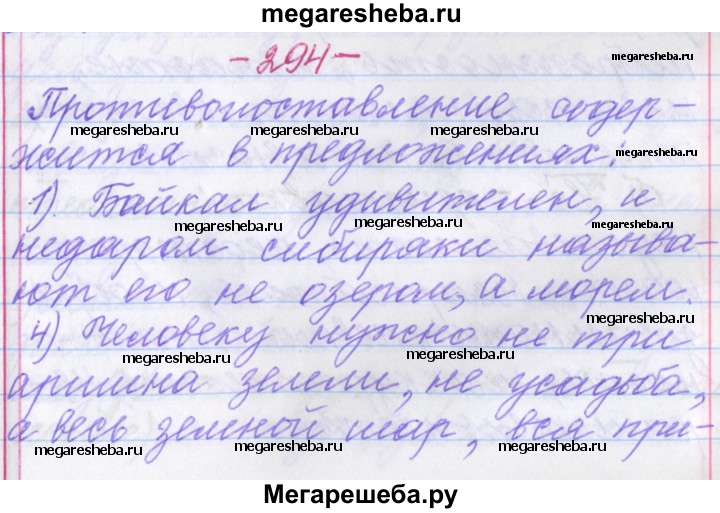 megaresheba.ru
- 294 -
megaresheba.ru
Противопоставление содер-
megaresheba.ru megaresheba.ru megaresheba.ru
жится в предложениях:
megaresheba.ru
1). Байкал удивителен, и
megaresheba.ru megaresheba.ru
недаром сибиряки называ-
megaresheba.ru
ют его не озером, а морем.
megaresheba.ru
4). Человеку нужно не три
megaresheba.ru megaresheba.ru
аршина земли, не усадьба,
megaresheba.ru
а весь земной шар, вся при-
megaresheba.ru megaresheba.ru
Мегарешеба.ру